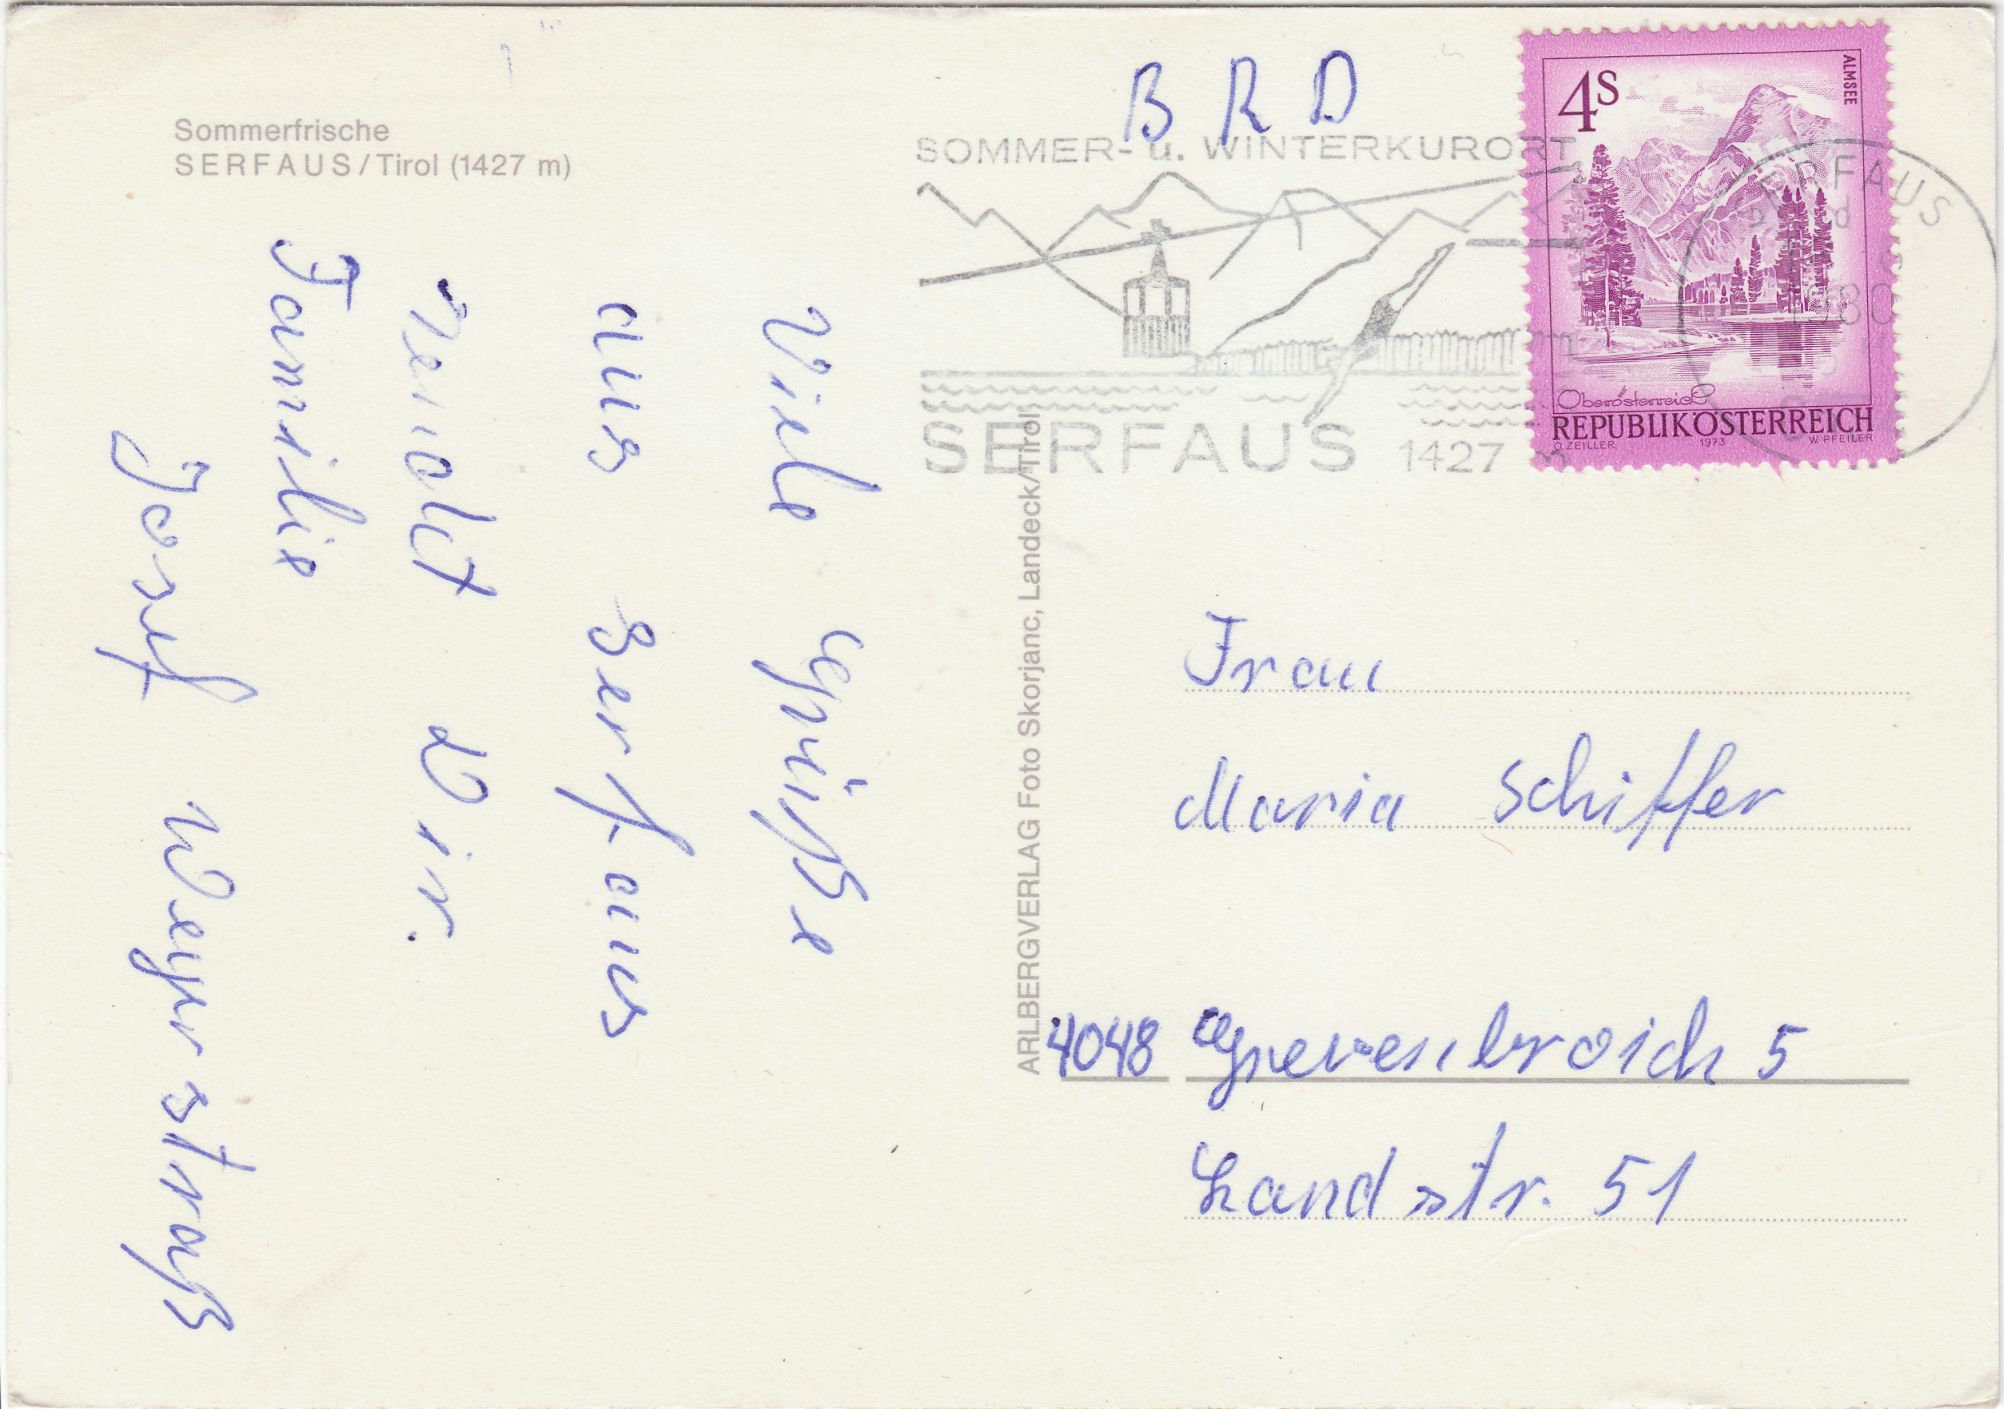 Sommerfrische
SERFAUS/Tirol (1427 m)
Viele Grüße
aus Serfaus
sendet Dir.
Familie
Josef Weyerstraß
ARLBERGVERLAG Foto Skorjanc, Landeck/Tirol
B R D
SOMMER- u. WINTERKURORT
SERFAUS 1427 m
4S
ALMSEE
Oberösterreich
REPUBLIK ÖSTERREICH
O. ZEILLER 1973 W. PFEILER
SERFAUS
1980
Frau
Maria Schiffer
4048 Grevenbroich 5
Landstr. 51